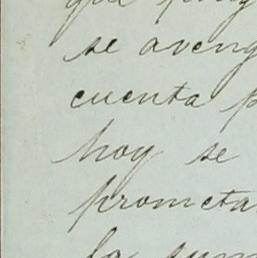 que
se aveng
cuenta p
hoy se
prometa
la